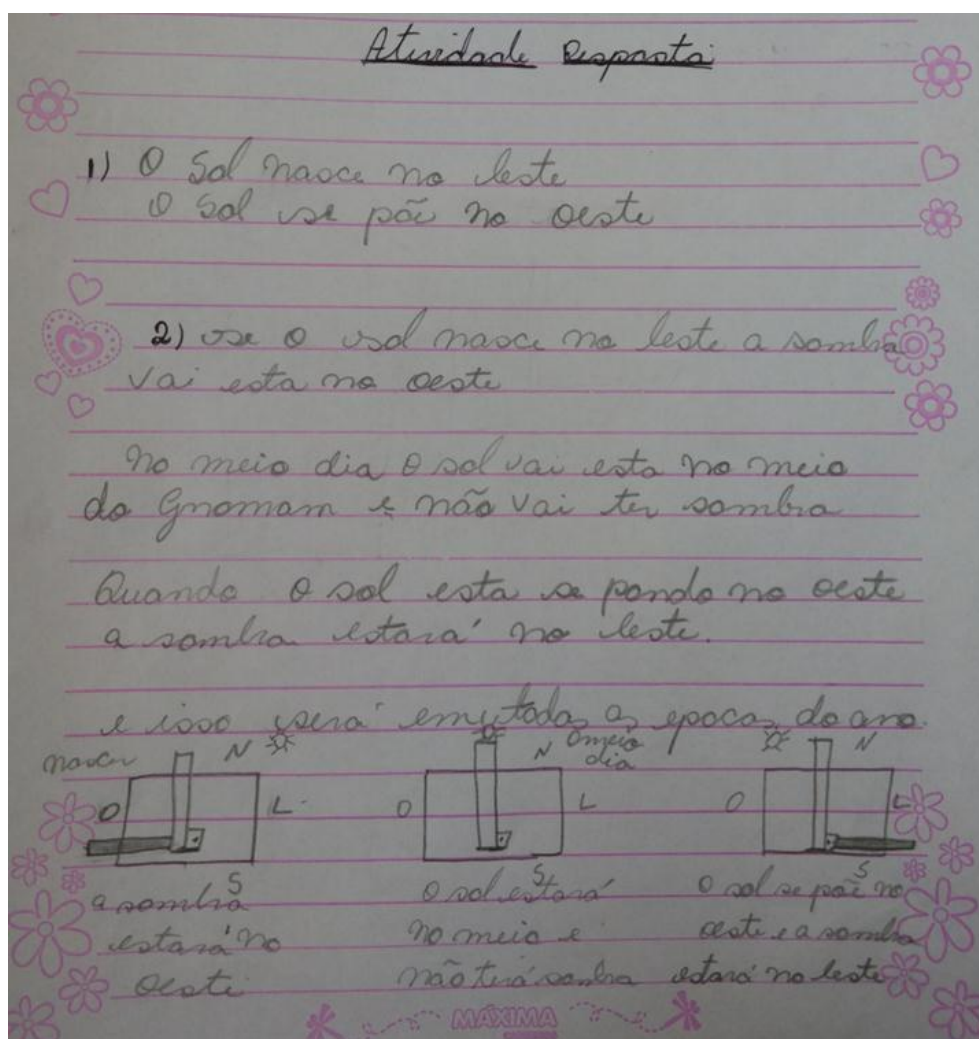 Atividade Resposta
1) O Sol nasce no leste
O Sol se põe no oeste
2) se o sol nasce no leste a sombra
vai esta no oeste
no meio dia o sol vai esta no meio
do Gnomam e não vai ter sombra
Quando o sol esta se pondo no oeste
a sombra estará no leste.
e isso será em todas as epocas do ano.
nascer N
O L
S
a sombra
estará no
oeste
N o meio
dia
O L
S
o sol estará
no meio e
não terá sombra
N
O L
S
o sol se põe no
oeste e a sombra
estará no leste
MÁXIMA